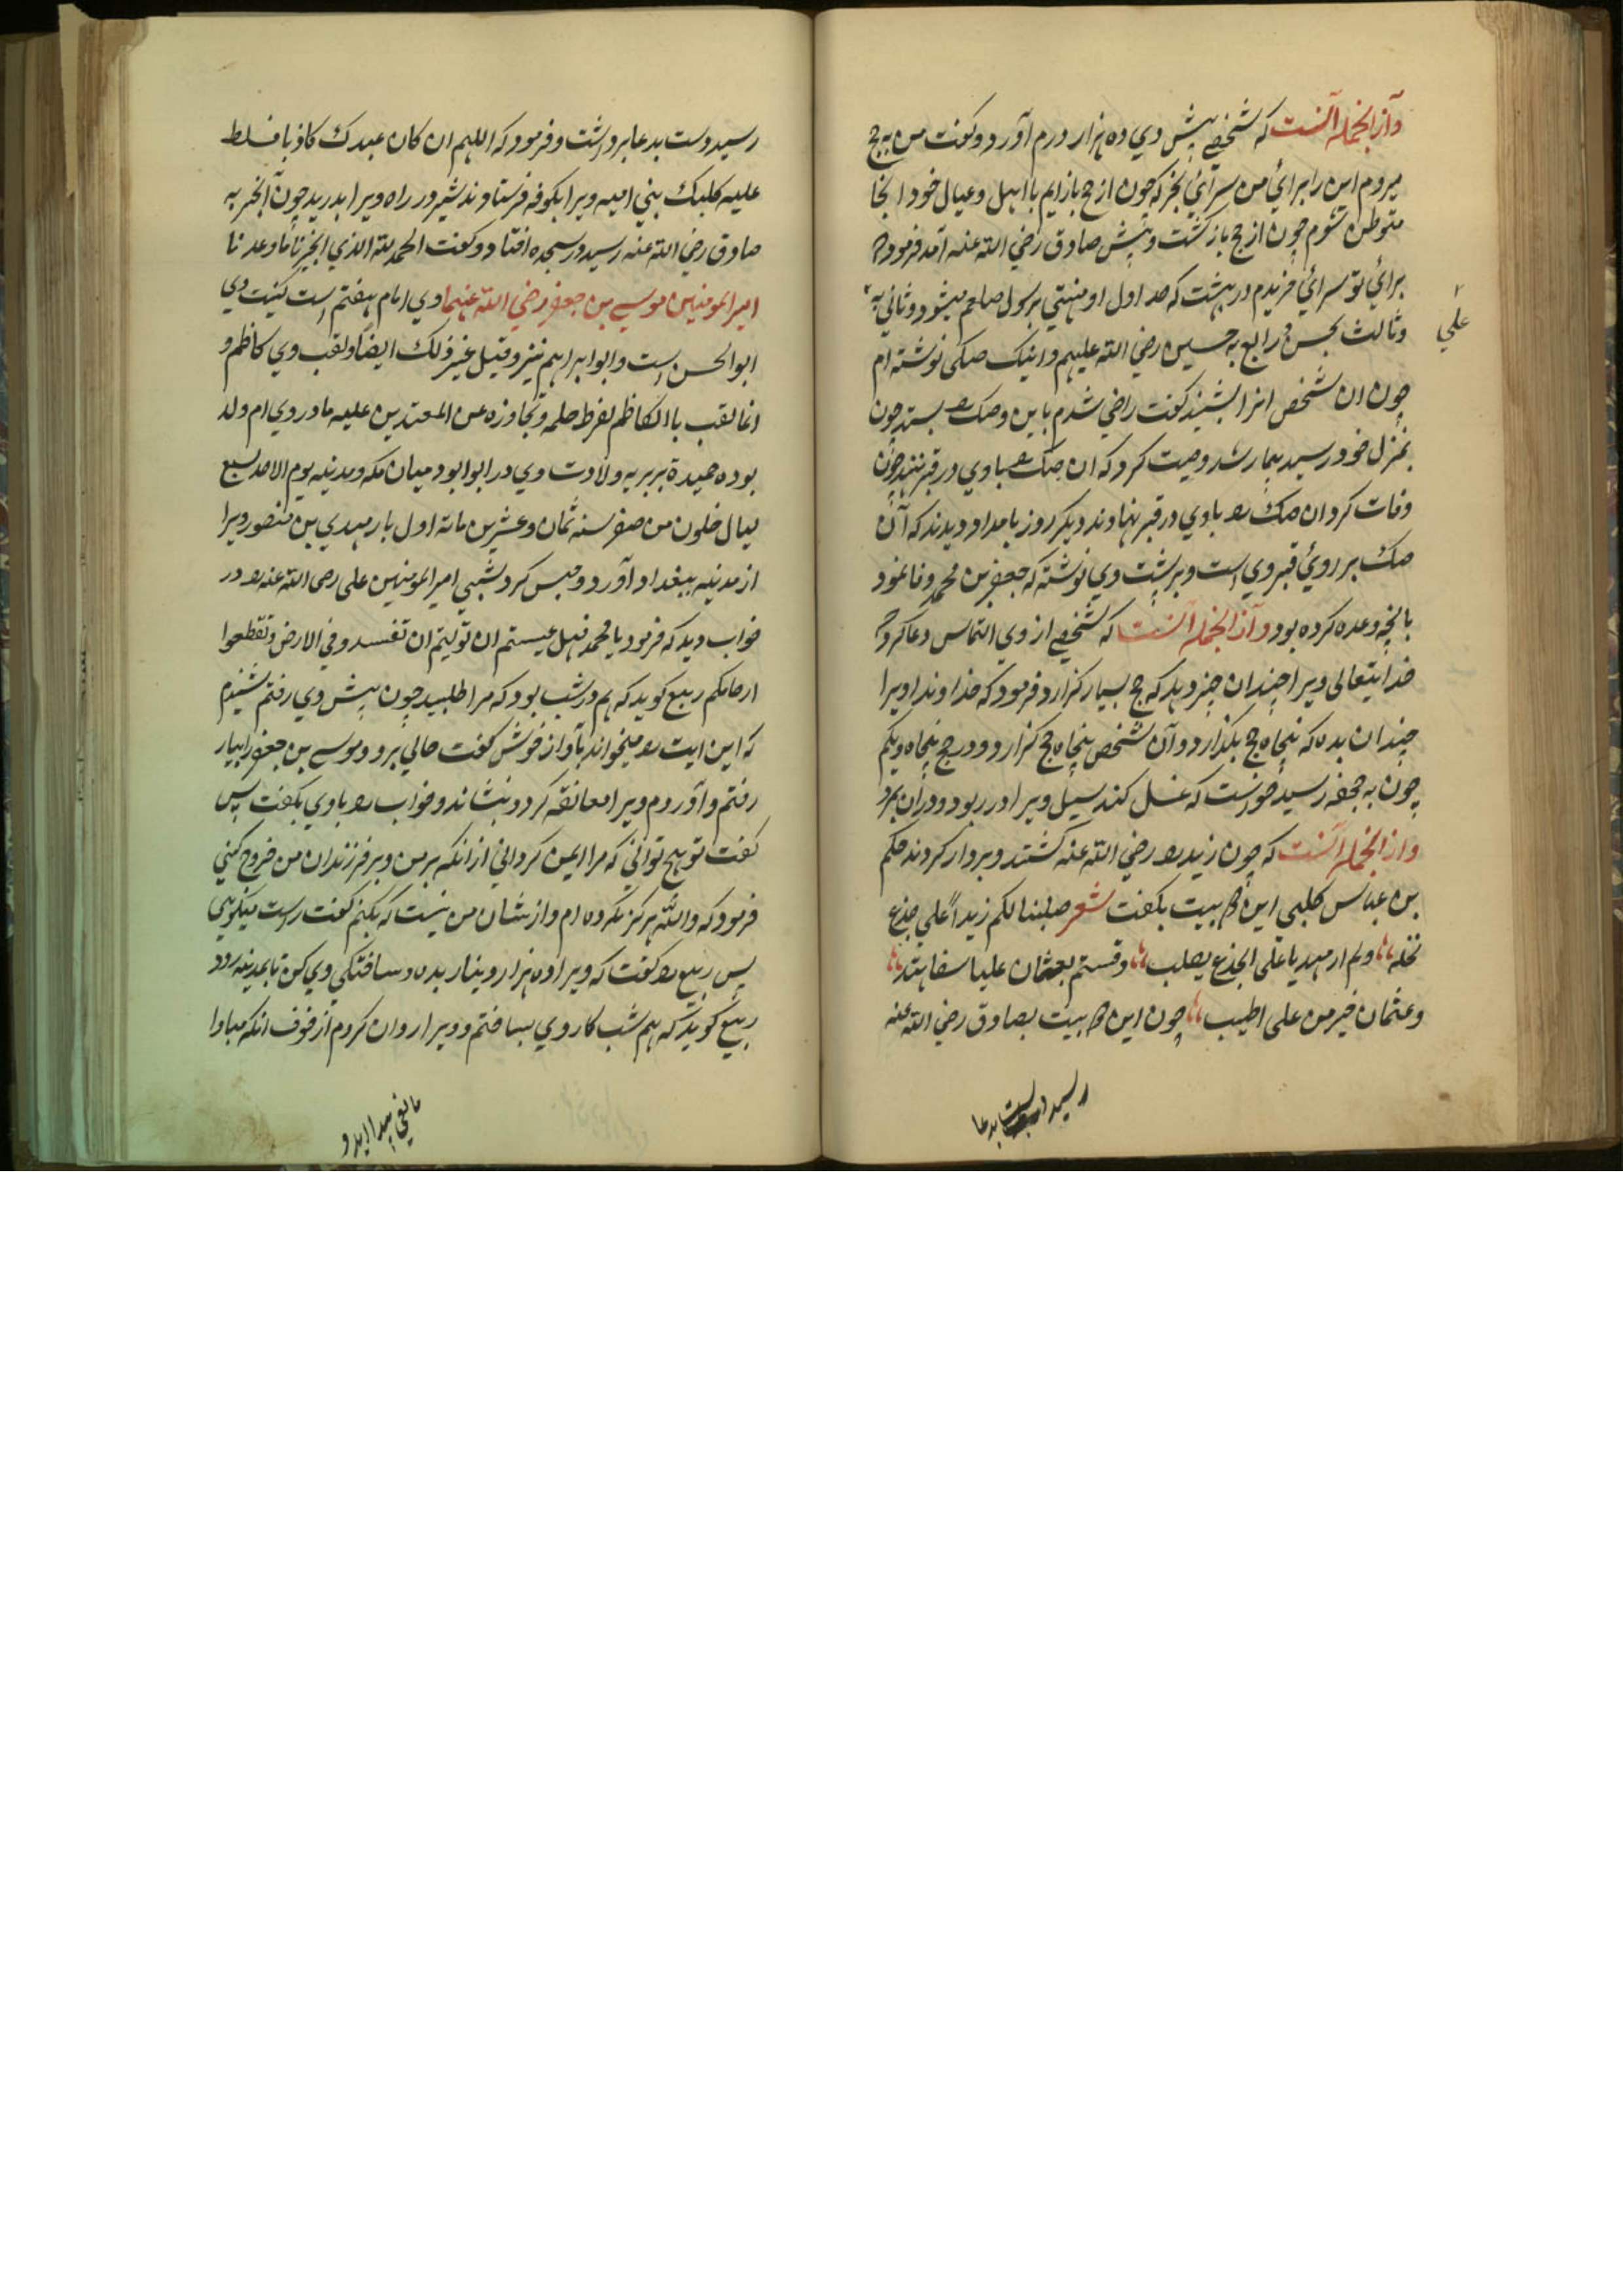 وآز انجمله آنست که شخصی پیش وی ده هزار درم آورد و گفت من به حج
میروم این را برائی من سرائی بخر که چون از حج باز ایم با اهل و عیال خود انجا
متوطن شوم چون از حج بازگشت و پیش صادق رضی الله عنه آمد فرمود
برائی تو سرائی خریدم در بهشت که حد اول او منتهی برسول صلعم میشود و ثانی به
علی
وثالث بحسن و رابع به حسین رضی الله علیهم و اینک صکی نوشته ام
چون ان شخص انرا بشنید گفت راضی شدم باین و صک را بستد چون
بمنزل خود رسید بیمار شد وصیت کرد که ان صک را با وی در قبر نهند چون
وفات کرد ان صک را با وی در قبر نهادند دیگر روز بامداد دیدند که آن
صک بر روئ قبر وی است و بر پشت وی نوشته که جعفر بن محمد وفا نمود
بانچه وعده کرده بود وآز انجمله آنست که شخصی از وی التماس دعا کرد
خدایتعالی ویرا چندان چیز دهد که حج بسیار گزارد فرمود که خداوندا ویرا
چندان بده که پنجاه حج بگذارد و آن شخص پنجاه حج گزارد و در حج پنجاه و یکم
چون به جحفه رسید خواست که غسل کند سیل ویرا در ربود و دران بمرد
واز انجمله آنست که چون زید را رضی الله عنه کشتند و بر دار کردند حکم
بن عباس کلبی این بیت بگفت شعر صلبنا لکم زیداً علی جذع
نخله ولم ار مهدیا علی الجذع یصلب وقستم بعثمان علیا سفاهته
وعثمان خیر من علی اطیب چون این بیت بصادق رضی الله عنه
رسید دست بدعا
رسید دست بدعا برداشت و فرمود که اللهم ان کان عبدک کاذبا فسلط
علیه کلبک بنی امیه ویرا بکوفه فرستادند شیر در راه ویرا بدرید چون آنخبر به
صادق رضی الله عنه رسید در سجده افتاد و گفت الحمد لله الذی انجزنا ما وعدنا
امیر المومنین موسی بن جعفر رضی الله عنهما وی امام هفتم است کنیت وی
ابو الحسن است و ابو ابراهیم نیز و قیل غیر ذلک ایضاً و لقب وی کاظم و
انما لقب باالکاظم لفرط حلمه وتجاوزه عن المعتدین علیه مادر وی ام ولد
بوده حمیدة بربریه ولادت وی در ابوا بود میان مکه و مدینه یوم الاحد لسبع
لیال خلون من صفر سنه ثمان وعشرین مائة اول بار مهدی بن منصور ویرا
از مدینه ببغداد آورد و حبس کرد شبی امیر المومنین علی رضی الله عنه را در
خواب دید که فرمود یا محمد فهل عیستم ان تولیتم ان تفسدو فی الارض وتقطعوا
ارحامکم ربیع گوید که هم در شب بود که مرا طلبید چون پیش وی رفتم شنیدم
که این ایت را میخواند بآواز خوش گفت حالی برو و موسی بن جعفر را بیار
رفتم و آوردم ویرا معانقه کرد و بنشاند و خواب را با وی بگفت پس
گفت تو هیچ توانی که مرا ایمن گردانی از انکه بر من و بر فرزندان من خروج کنی
فرمود که والله هرگز نکرده ام و از شان من نیست که بکنم گفت راست میگوئی
پس ربیع را گفت که ویرا ده هزار دینار بده و ساختگی وی کن تا بمدینه رود
ربیع گوید که هم شب کار وی بساختم و ویرا روان کردم از خوف انکه مبادا
مانعی پیدا آید و